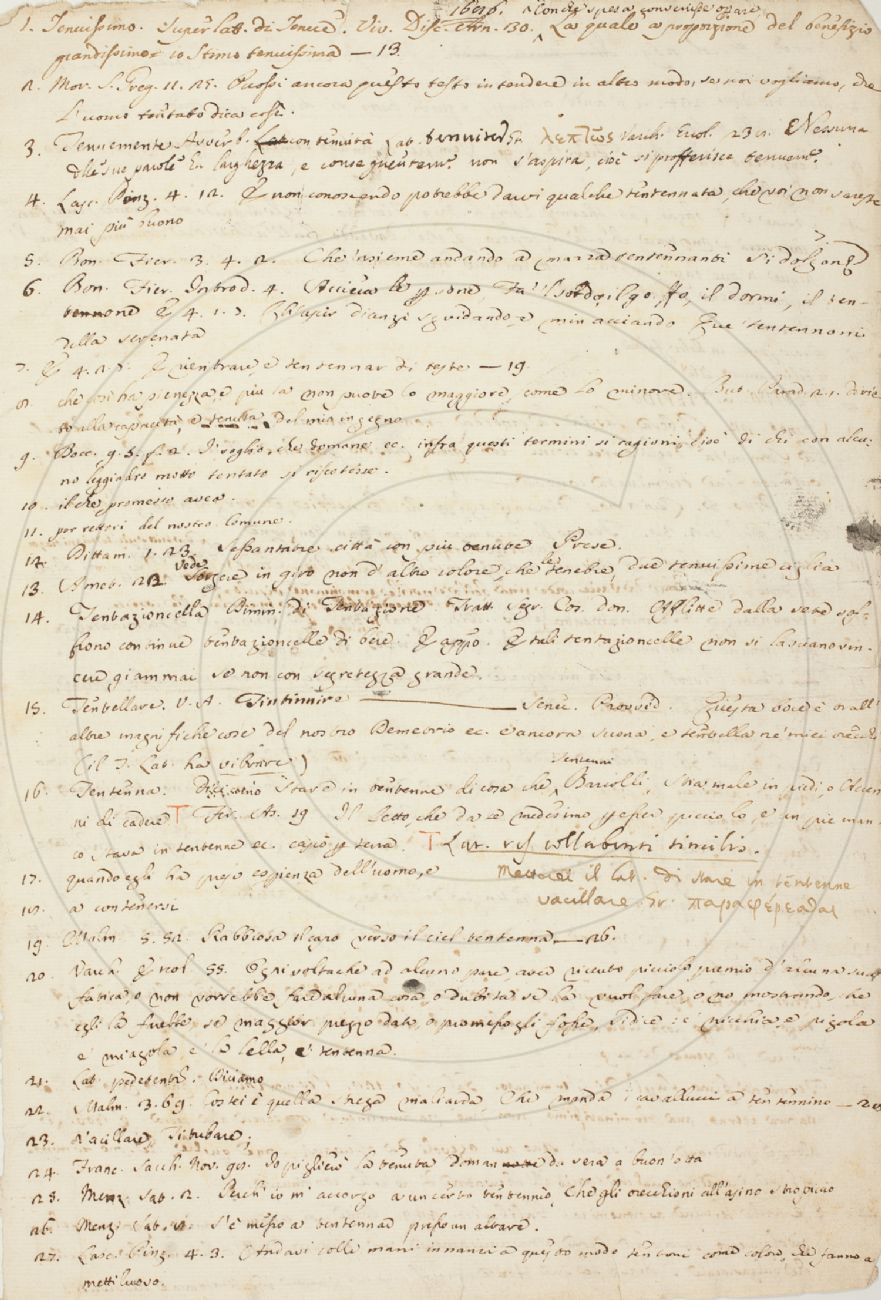 1616. ^ Con che spesa converrebbe oprare,
1. Tenuissimo. Superlatt. di Tenue. Viv. Disc. Arn. 130. La quale a proporzione del benefizio
grandissimo io stimo tenuissima — 13
2. Mor. S. Greg. 11. 25. Puossi ancora questo testo intendere in altro modo, se noi vogliamo, che
l'uomo tentato dica così.
3. Tenuemente Avverb. con tenuità Lat. tenuiter Gr. λεπτῶς Varch. Ercol. 
che sue parole larghezza, e conseguentem. non s'aspira, cioè si profferisce tenuem.
4. Lasc. Pinz. 4. 12. E non conoscendo potrebbe darvi qualche tentennata, che voi non sareste
mai più buono
5. Bon. Fier. 3. 4. 2. Che insieme andando a mazza tentennanti si dolgon
6. Bon. Fier. Introd. 4. Accieca le persone, Fa 'l sordo, il goffo, il dormi, il ten-
tennone E 4. 1. 7. dianzi sgridando, e minacciando Que' tentennoni
della serenata
7. E 4. 2. 7. E rientrare, e tentennar di teste — 19
8. che così ha pienezza, e più la non puote lo maggiore, come lo minore. But. Parad. 21. 
alla capacità, e tenuta del mio ingegno
9. Bocc. g. 5. f. 2. I' voglio, che domane ec. infra questi termini si ragioni, cioè di chi con alcu-
no leggiadro motto tentato si riscotesse.
10. il che promesso avea.
11. per rettori del nostro Comune.
12. Dittam. 1. 23. Sessantatre città con più tenute Prese.
13. Amet. 22 Vede sorgere in giro non d'altro colore, che le tenebre, due tenuissime ciglia
14. Tentazioncella Dimin. di Tentazione Tratt. Segr. Cos. don. Afflitte dalla sete sof-
fiono continue tentazioncelle di bere. E appo. E tali tentazioncelle non si lasciano vin-
cere giammai se non con segretezza grande.
15. Tentellare. V. A. Tintinnire — Senec. Provved. Questa voce è or all'
altre magnifiche cose del nostro Demetrio ec. e ancora suona, e tentella ne' miei orecchi
(il T. Lat. ha vibrare)
16. Tentenna. Stare in tentenne di cosa che ^ Tentenni Barcolli, Stia male in piedi, o Accen-
ni di cadere T Fir. As. 19 Il letto, che da se medesimo per esser piccolo, e in piè man-
co, stava in tentenne ec. cascò per terra. T Lat. rei collabenti similis.
17. quando egli ha preso esperienza dell'uomo, e mettere il Lat. di stare in tentenne
18. a contenersi vacillare. Gr. παραφέρεσθαι
19. Malm. 5. 52. Rabbiosa il capo verso il ciel tentenna — 26.
20. Varch. Ercol. 55. Ogni volta che ad alcuno pare aver ricevuto picciolo premio d'alcuna sua
fatica, o non vorrebbe fare alcuna cosa, o dubita se la vuol fare, o no mostrando, che
egli la farebbe, se maggior prezzo dato, o promesso gli fosse, si dice: e' nicchia, e' pigola
e' miagola, e' la lella, e' tentenna.
21. Lat. pedetentim. Diciamo
22. Malm. 3. 69. Costei è quella strega maliarda, Che manda i cavallucci a tentennino — 20
23. Vacillare, Titubare;
24. Franc. Sacch. Nov. Io piglierò la tenuta doman da sera a buon'otta
25. Menz. Sat. 2. Perch'io m'accorgo a un certo tentennìo, Che gli orecchioni all'asino stropiccio
26. Menz. Sat. S'è messo a tentennar presso un altare.
27. Lasc. Pinz. 4. 3. Andavi colle mani innanzi a questo modo tentoni come coloro, che fanno a
metti l'uovo.